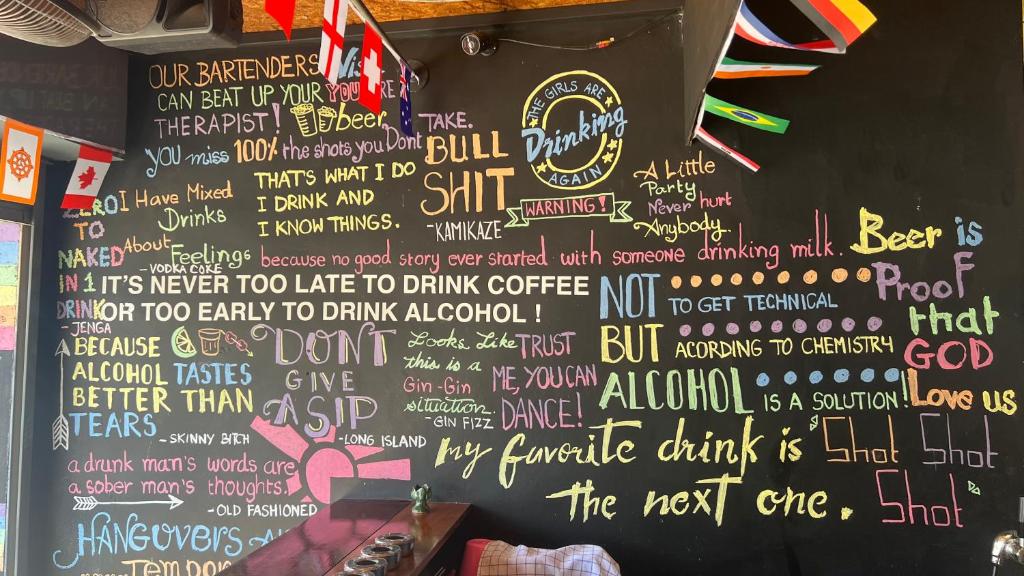 OUR BARTENDERS
CAN BEAT UP YOUR
THERAPIST! beer
YOU miss 100% the shots you Dont TAKE.
ZERO
TO
NAKED
IN 1
DRINK
- JENGA
I Have Mixed
Drinks
About Feelings
- VODKA COKE
THAT'S WHAT I DO
I DRINK AND
I KNOW THINGS.
BULL
SHIT
- KAMIKAZE
THE GIRLS ARE
Drinking
AGAIN
WARNING!
A Little
Party
Never hurt
Anybody.
because no good story ever started with someone drinking milk.
IT'S NEVER TOO LATE TO DRINK COFFEE
OR TOO EARLY TO DRINK ALCOHOL !
Beer is
Proof
that
GOD
Love us
NOT TO GET TECHNICAL
BUT ACORDING TO CHEMISTRY
ALCOHOL IS A SOLUTION!
BECAUSE
ALCOHOL TASTES
BETTER THAN
TEARS
- SKINNY BITCH
DON'T
GIVE
A SIP
- LONG ISLAND
Looks Like
this is a
Gin-Gin
situation.
- GIN FIZZ
TRUST
ME, YOU CAN
DANCE!
a drunk man's words are
a sober man's thoughts.
- OLD FASHIONED
my favorite drink is "Shot Shot
the next one. Shot"
HANGOVERS